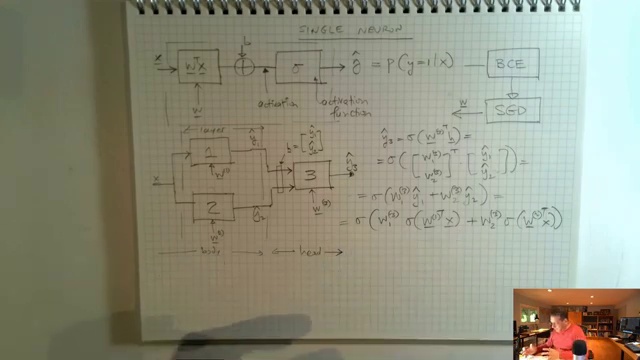 SINGLE NEURON
x wᵀx b σ ŷ = p(y=1|x) BCE
w activation activation function w SGD
layer ŷ₁ h = [ŷ₁ ŷ₂]
x 1 w⁽¹⁾ 3 ŷ₃ w⁽³⁾
2 ŷ₂ w⁽²⁾
head
ŷ₃ = σ(w⁽³⁾ᵀ h) =
= σ([w₁⁽³⁾ w₂⁽³⁾]ᵀ [ŷ₁ ŷ₂]) =
= σ(w₁⁽³⁾ ŷ₁ + w₂⁽³⁾ ŷ₂) =
= σ(w₁⁽³⁾ σ(w⁽¹⁾ᵀ x) + w₂⁽³⁾ σ(w⁽²⁾ᵀ x))